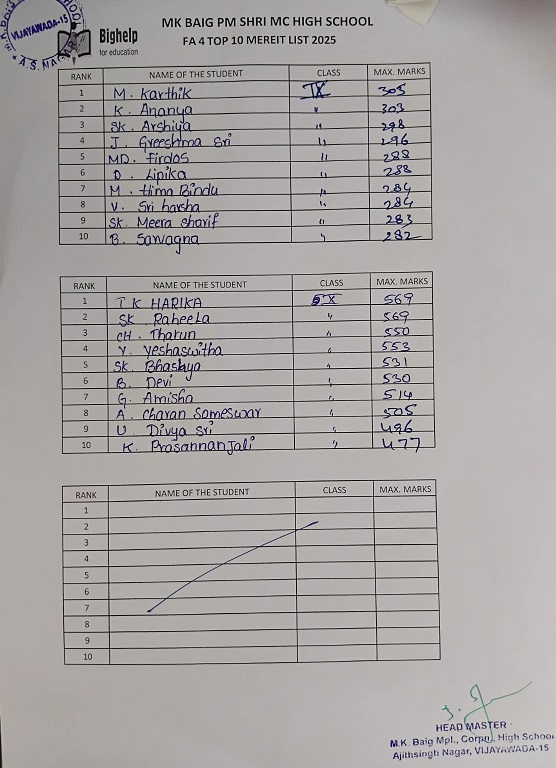 VIJAYAWADA-15
A.S. NAGAR
Bighelp
for education
MK BAIG PM SHRI MC HIGH SCHOOL
FA 4 TOP 10 MEREIT LIST 2025
RANK NAME OF THE STUDENT CLASS MAX. MARKS
1 M. Karthik IX 305
2 K. Ananya " 303
3 SK. Arshiya " 298
4 J. Greeshma Sri " 296
5 MD. Firdos " 288
6 D. Lipika " 288
7 M. Hima Bindu " 284
8 V. Sri harsha " 284
9 SK. Meera sharif " 283
10 B. Sarvagna " 282
RANK NAME OF THE STUDENT CLASS MAX. MARKS
1 T K HARIKA X 569
2 SK Raheela " 569
3 CH. Tharun " 550
4 Y. Yeshaswitha " 553
5 SK. Bhashya " 531
6 B. Devi " 530
7 G. Amisha " 514
8 A. Charan Someswar " 505
9 U. Divya Sri " 496
10 K. Prasannanjali " 477
RANK NAME OF THE STUDENT CLASS MAX. MARKS
1
2
3
4
5
6
7
8
9
10
HEAD MASTER
M.K. Baig Mpl., Corpn. High School
Ajithsingh Nagar, VIJAYAWADA-15